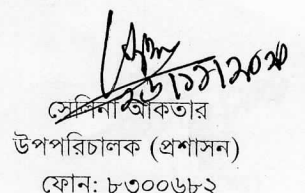 সেলিনা আকতার
উপপরিচালক (প্রশাসন)
ফোন: ৮৩০০৬৮২